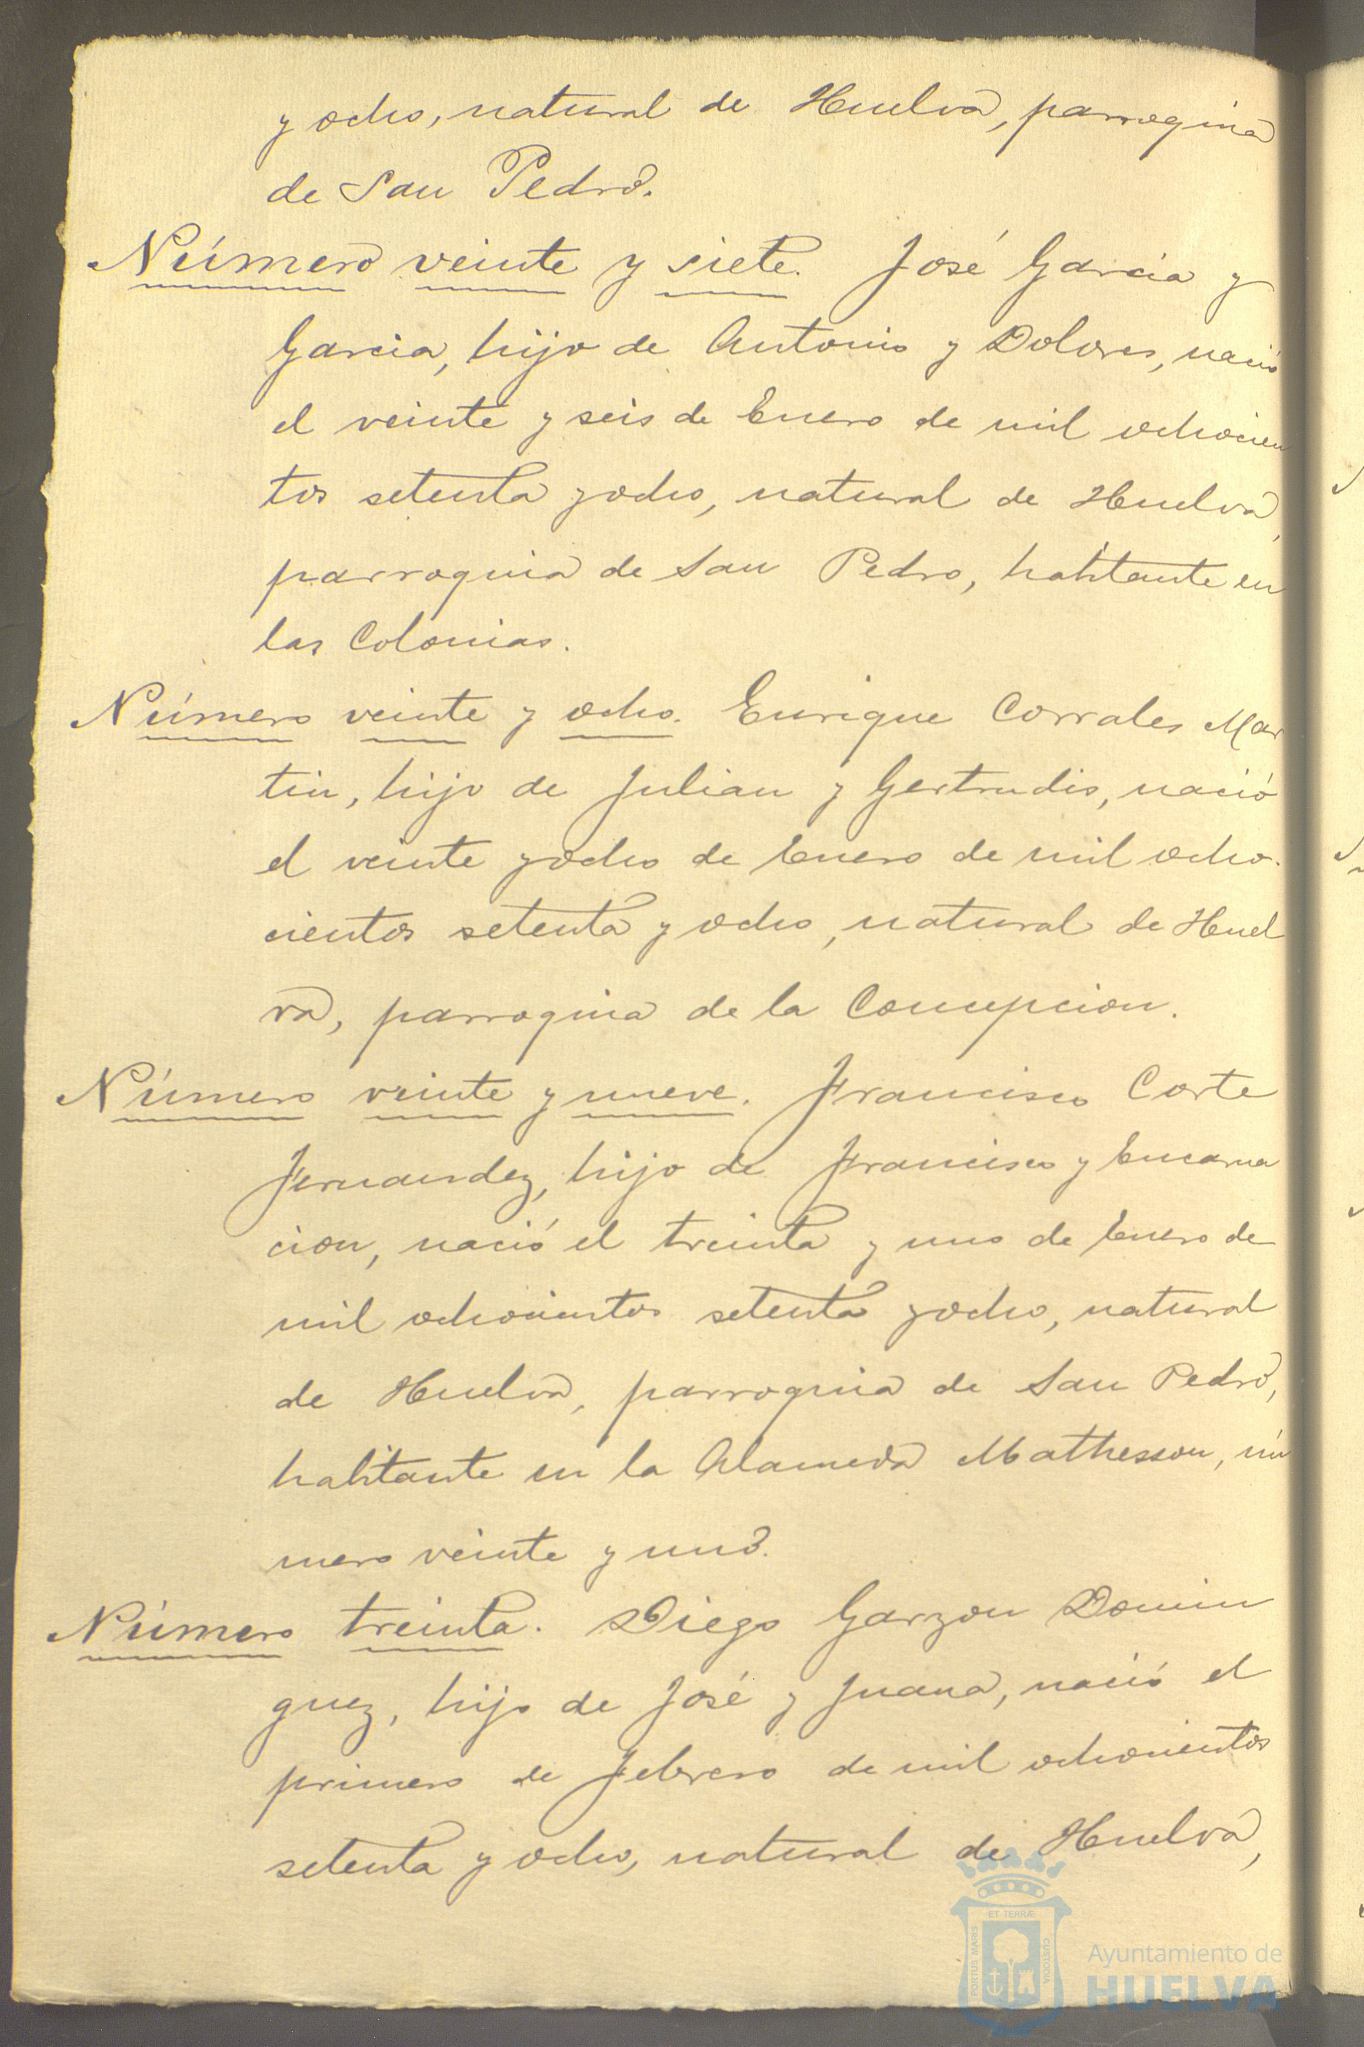 y ocho, natural de Huelva, parroquia
de San Pedro.
Número veinte y siete. José Garcia y
Garcia, hijo de Antonio y Dolores, nació
el veinte y seis de Enero de mil ochocien
tos setenta y ocho, natural de Huelva,
parroquia de San Pedro, habitante en
las Colonias.
Número veinte y ocho. Enrique Corrales Mar
tin, hijo de Julian y Gertrudis, nació
el veinte y ocho de Enero de mil ocho-
cientos setenta y ocho, natural de Huel
va, parroquia de la Concepcion.
Número veinte y nueve. Francisco Corte
Fernandez, hijo de Francisco y Encarna
cion, nació el treinta y uno de Enero de
mil ochocientos setenta y ocho, natural
de Huelva, parroquia de San Pedro,
habitante en la Alameda Mathesson, nú
mero veinte y uno.
Número treinta. Diego Garzon Domin
guez, hijo de José y Juana, nació el
primero de Febrero de mil ochocientos
setenta y ocho, natural de Huelva,
ET TERRÆ
PORTUS MARIS
CUSTODIA
Ayuntamiento de
HUELVA